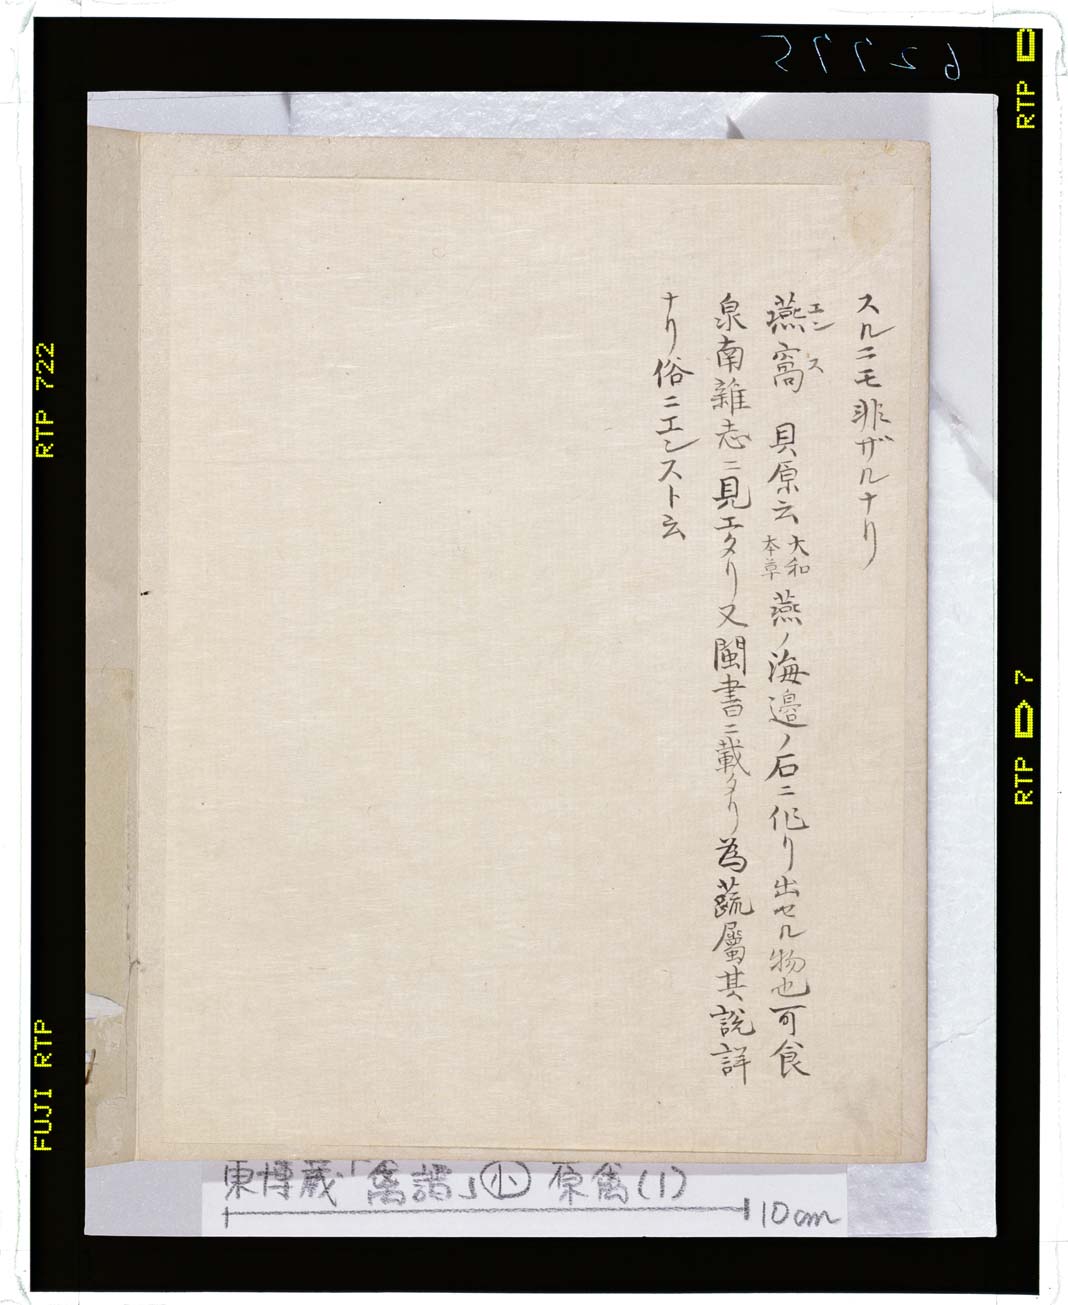 スルニモ非ザルナリ
燕窩 貝原云 大和本草 燕ノ海邉ノ石ニ作リ出セル物也可食
エンス
泉南雜志ニ見エタリ又閩書ニ載タリ為蔬屬其說詳
ナリ俗ニエンスト云
東博蔵「禽譜」小 原禽(1)
10cm
62775
RTP
RTP 722
RTP 7
FUJI RTP